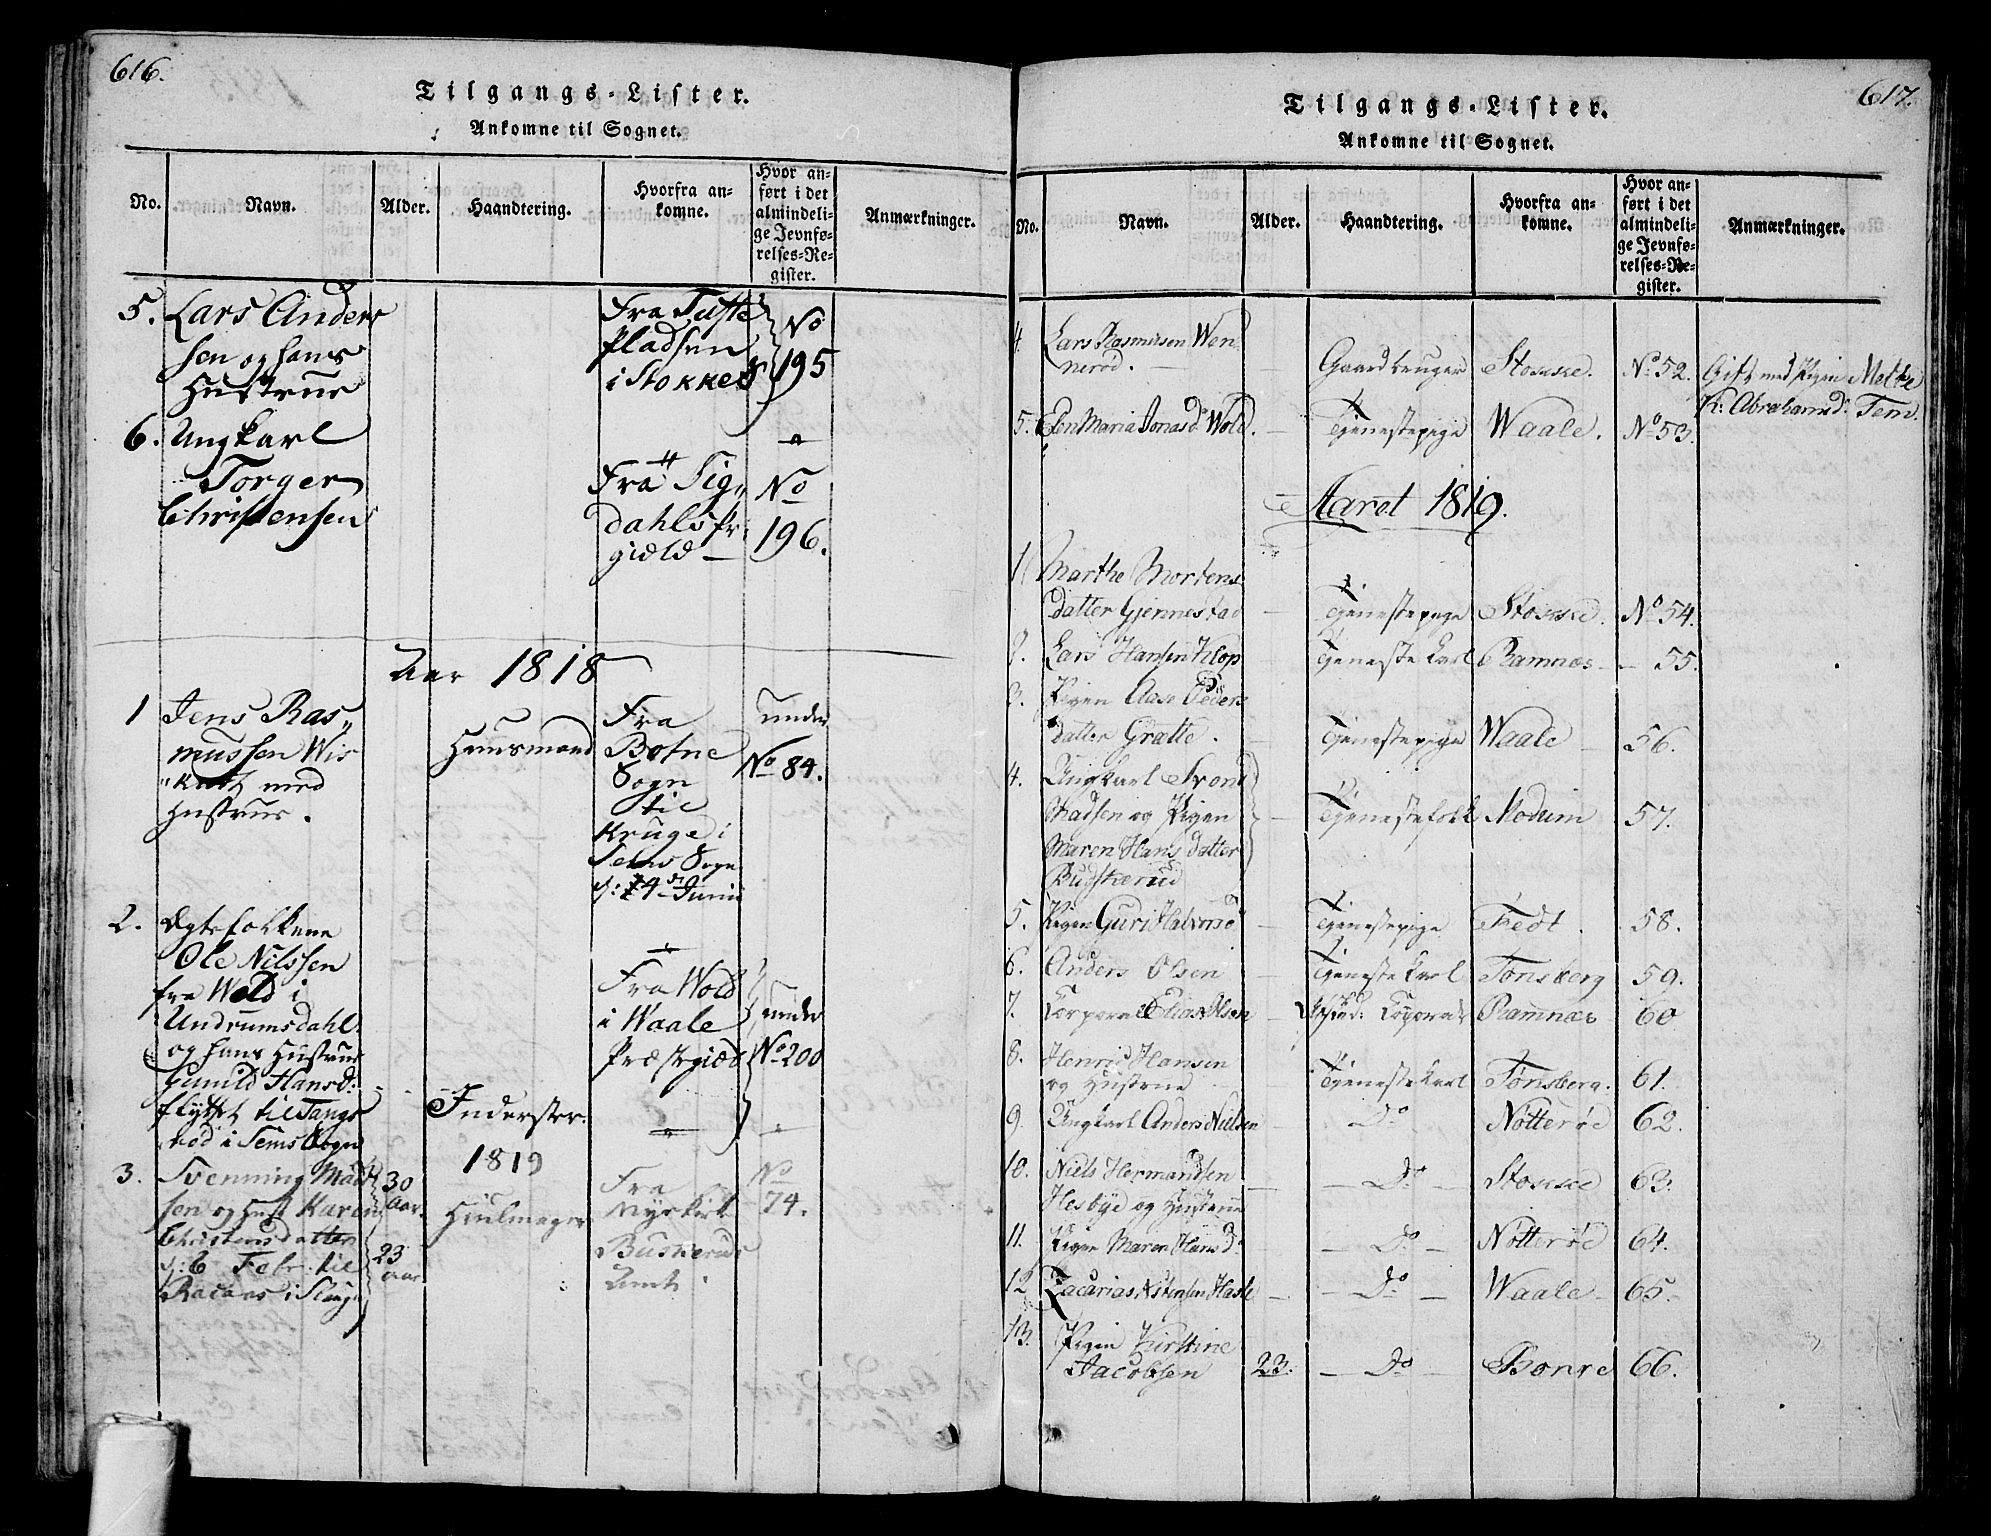 616.
Tilgangs-Lister.
Ankomne til Sognet.
No.
Navn.
Alder.
Haandtering.
Hvorfra an-
komne.
Hvor an-
ført i det
almindeli-
ge Jevnfø-
relses-Re-
gister.
Anmærkninger.
5. Lars Anders
sen og hans
Hustrue
Fra Tufte
Pladsen
i Stokke
No
195
6. Ungkarl
Torger
Christensen
Fra Sig„
dahls Pr.
gield
No
196.
Aar 1818
1 Jens Ras„
mussen Wis
med
Hustrue.
Huusmand
Fra
Botne
Sogn
til
Kruge i
Sems Sogn
d: 14de Junii
under
No 84.
2. Ægtefolkene
Ole Nilssen
fra Wold i
Undrumsdahl
og hans Hustrue
Gunild Hansd:
flyttet til Tangs
rød i Sems Sogn
Inderster.
Fra Wold
i Waale
Præstegield
under
No 200
1819
3. Svenning Mad
sen og Hust Karen
Christensdatter
d: 6 Febr. til
i Slagn
30
Aar.
23
aar
Hiulmager
Fra
Nyekirk
Buskerud
Amt
No
74.
617.
Tilgangs-Lister.
Ankomne til Sognet.
No.
Navn.
Alder.
Haandtering.
Hvorfra an-
komne.
Hvor an-
ført i det
almindeli-
ge Jevnfø-
relses-Re-
gister.
Anmærkninger.
4. Lars Rasmusen Wen
nerød. Gaardbruger Stokke. No 52. Gift med Pigen Mette
K: Abrahamsd. Tem.
5. Elen Maria Jonasd Wold. Tjenestepige Waale. No 53.
Aaret 1819.
1 Marthe Mortens
datter Gjennestad Tjenestepige Stokke. No 54.
2. Lars Hansen Klop Tjeneste Karl Ramnæs 55.
3. Pigen Aase Peders
datter Gratte. Tjenestepige Waale 56.
4. Ungkarl Trond
Madsen og Pigen Tjenestefolk Modum 57.
Maren Hans datter
Buskerud
5. Pigen Guri Halvorsd Tjenestepige 58.
6. Anders Olsen Tjeneste Karl Tønsberg 59.
7. Corporal Elias Olsen Ramnæs 60
8. Henrich Hansen
og Hustrue Tjeneste Karl Tønsberg. 61.
9. Ungkarl Anders Nielsen Do Nøtterøe 62.
10. Niels Hermandsen Do Stokke 63.
Hesbye og Hustrue
11. Pigen Maren Hans d. Do Nøtterøe 64.
12 Zacarias Astensen Hasle Do Waale 65.
13. Pigen Kirstine
Jacobsen 23. Do Borre 66.